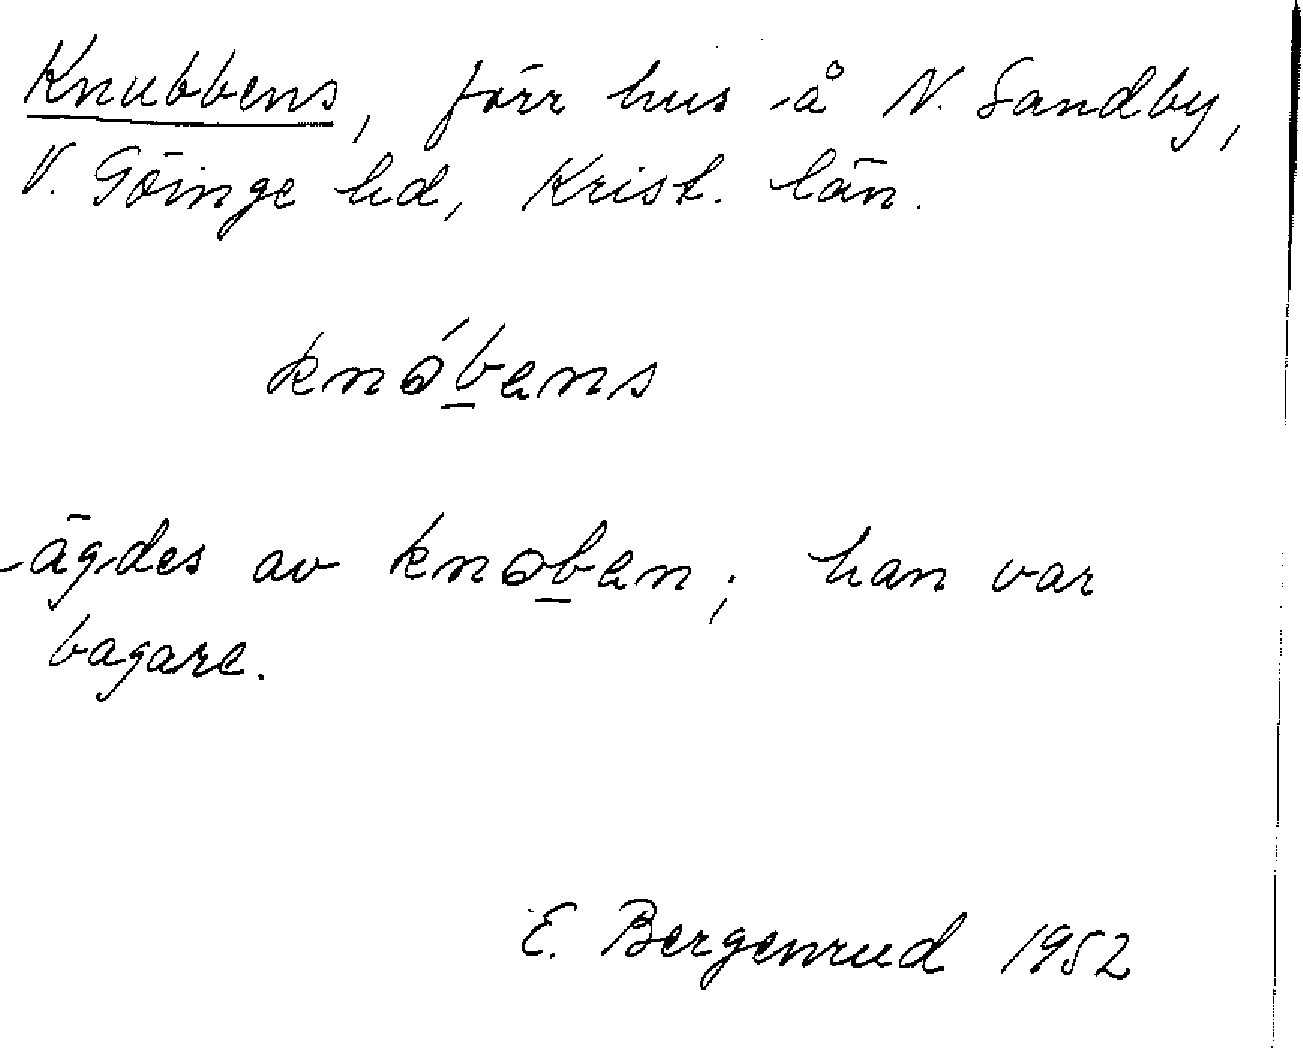 Knubbens, förr hus å N. Sandby,
V. Göinge hd, Krist. län.
knób̲ens
ägdes av knob̲en; han var
bagare.
E. Bergenrud 1952